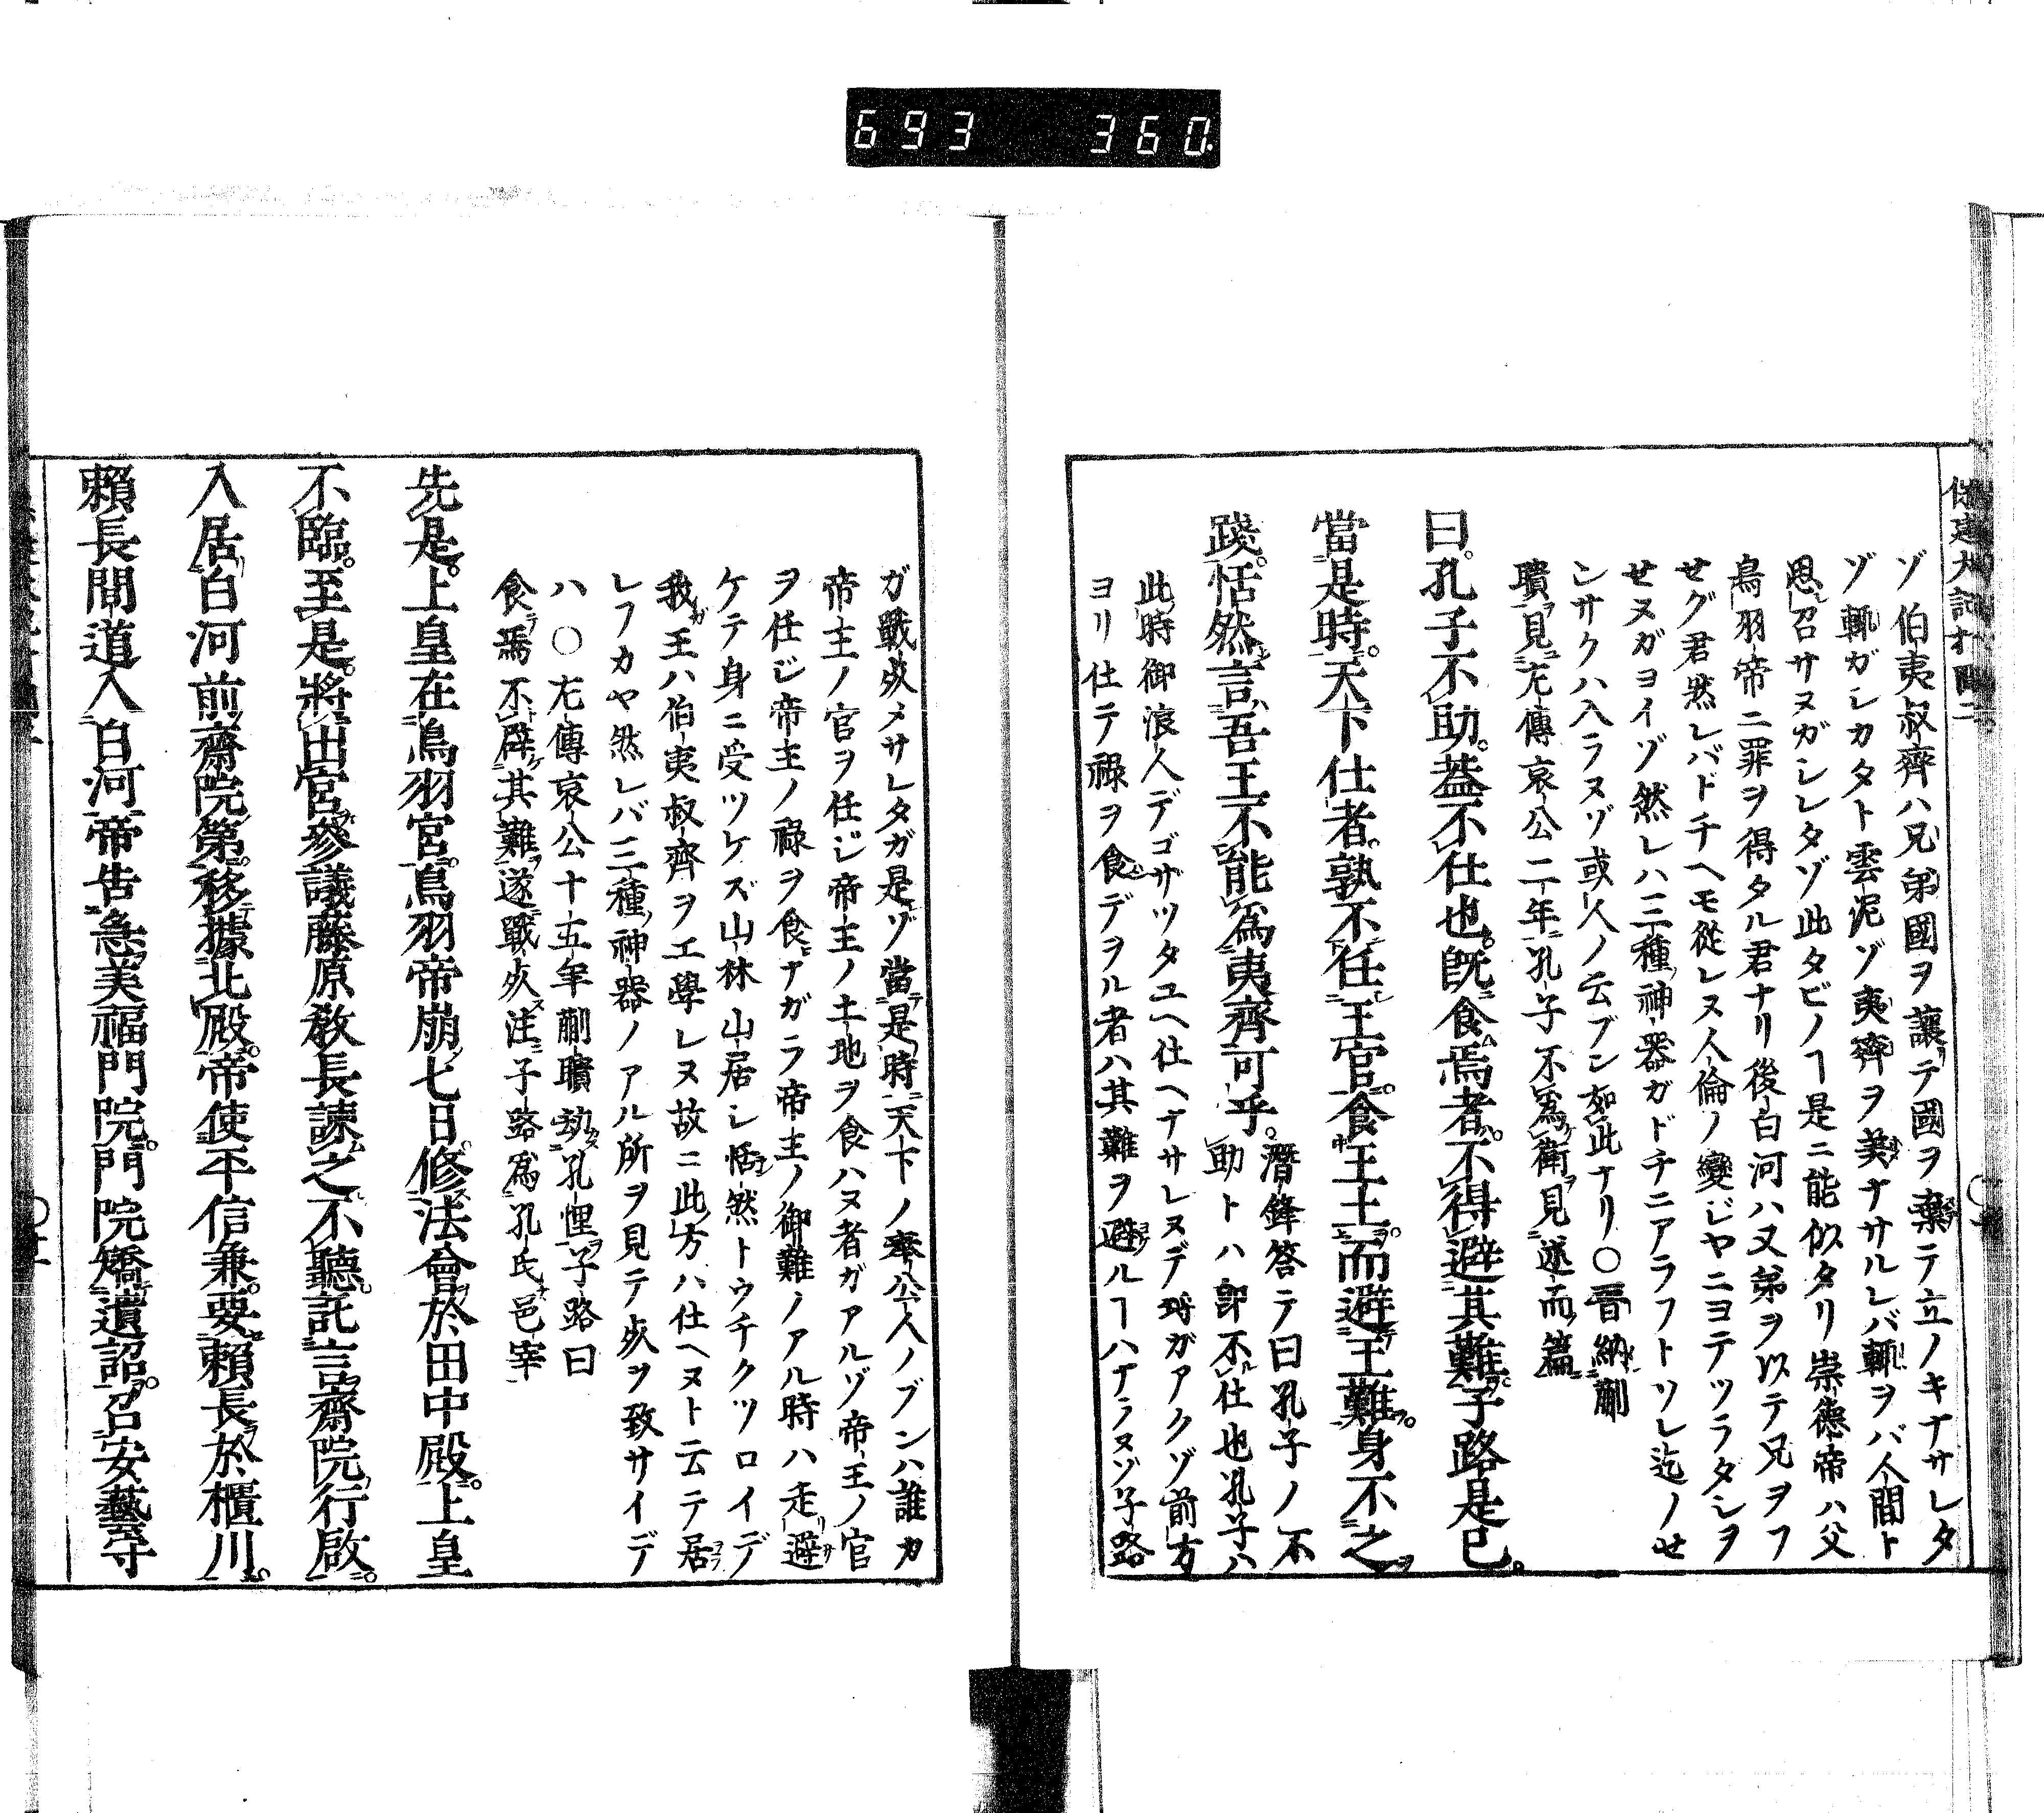 693 360
保建大記打聞二
ゾ伯夷叔齊ハ兄弟國ヲ讓テ國ヲ棄テ立ノキナサレタ
ゾ輒ガシカタト雲泥ゾ夷齊ヲ美ナサルレバ輒ヲバ人間ト
思召サヌガシレタゾ此タビノヿ是ニ能似タリ崇德帝ハ父
鳥羽帝ニ罪ヲ得タル君ナリ後白河ハ又弟ヲ以テ兄ヲフ
セグ君然レバドチヘモ從レヌ人倫ノ變ジヤニヨテツラタシヲ
セヌガヨイゾ然レハ三種神器ガドチニアラフトソレ迄ノせ
ンサクハ入ラヌゾ或人ノ云ブン如此ナリ○晉納蒯
聵見左傳哀公二年孔子不爲衛見述而篇
曰孔子不助蓋不仕也既食焉者不得避其難子路是已
當是時天下仕者孰不任王官食王土而避王難身不之
踐恬然言吾王不能爲夷齊可乎
潛鋒答テ曰孔子ノ不
助トハ卽不仕也孔子ハ
此時御浪人デゴザツタユヘ仕ヘナサレヌデ埒ガアクゾ前方
ヨリ仕テ祿ヲ食デヲル者ハ其難ヲ避ルヿハナラヌゾ子路
ガ戰死メサレタガ是ゾ當是時天下ノ奉公人ノブンハ誰カ
帝主ノ官ヲ任ジ帝主ノ土地ヲ食ハヌ者ガアルゾ帝王ノ官
ヲ任ジ帝主ノ祿ヲ食ナガラ帝主ノ御難ノアル時ハ走避
ケテ身ニ受ツケズ山林山居シ恬然トウチクツロイデ
我王ハ伯夷叔齊ヲエ學レヌ故ニ此方ハ仕ヘヌト云テ居
レフカヤ然レバ三種神器ノアル所ヲ見テ死ヲ致サイデ
ハ○左傳哀公十五年蒯聵劫孔悝子路曰
食焉不辟其難遂戰死注子路爲孔氏邑宰
先是上皇在鳥羽宮鳥羽帝崩七日修法會於田中殿上皇
不臨至是將出宮參議藤原敎長諫之不聽託言齋院行啟
入居白河前齋院第移據北殿帝使平信兼要賴長於櫃川
賴長間道入白河帝告急美福門院門院矯遺詔召安藝守